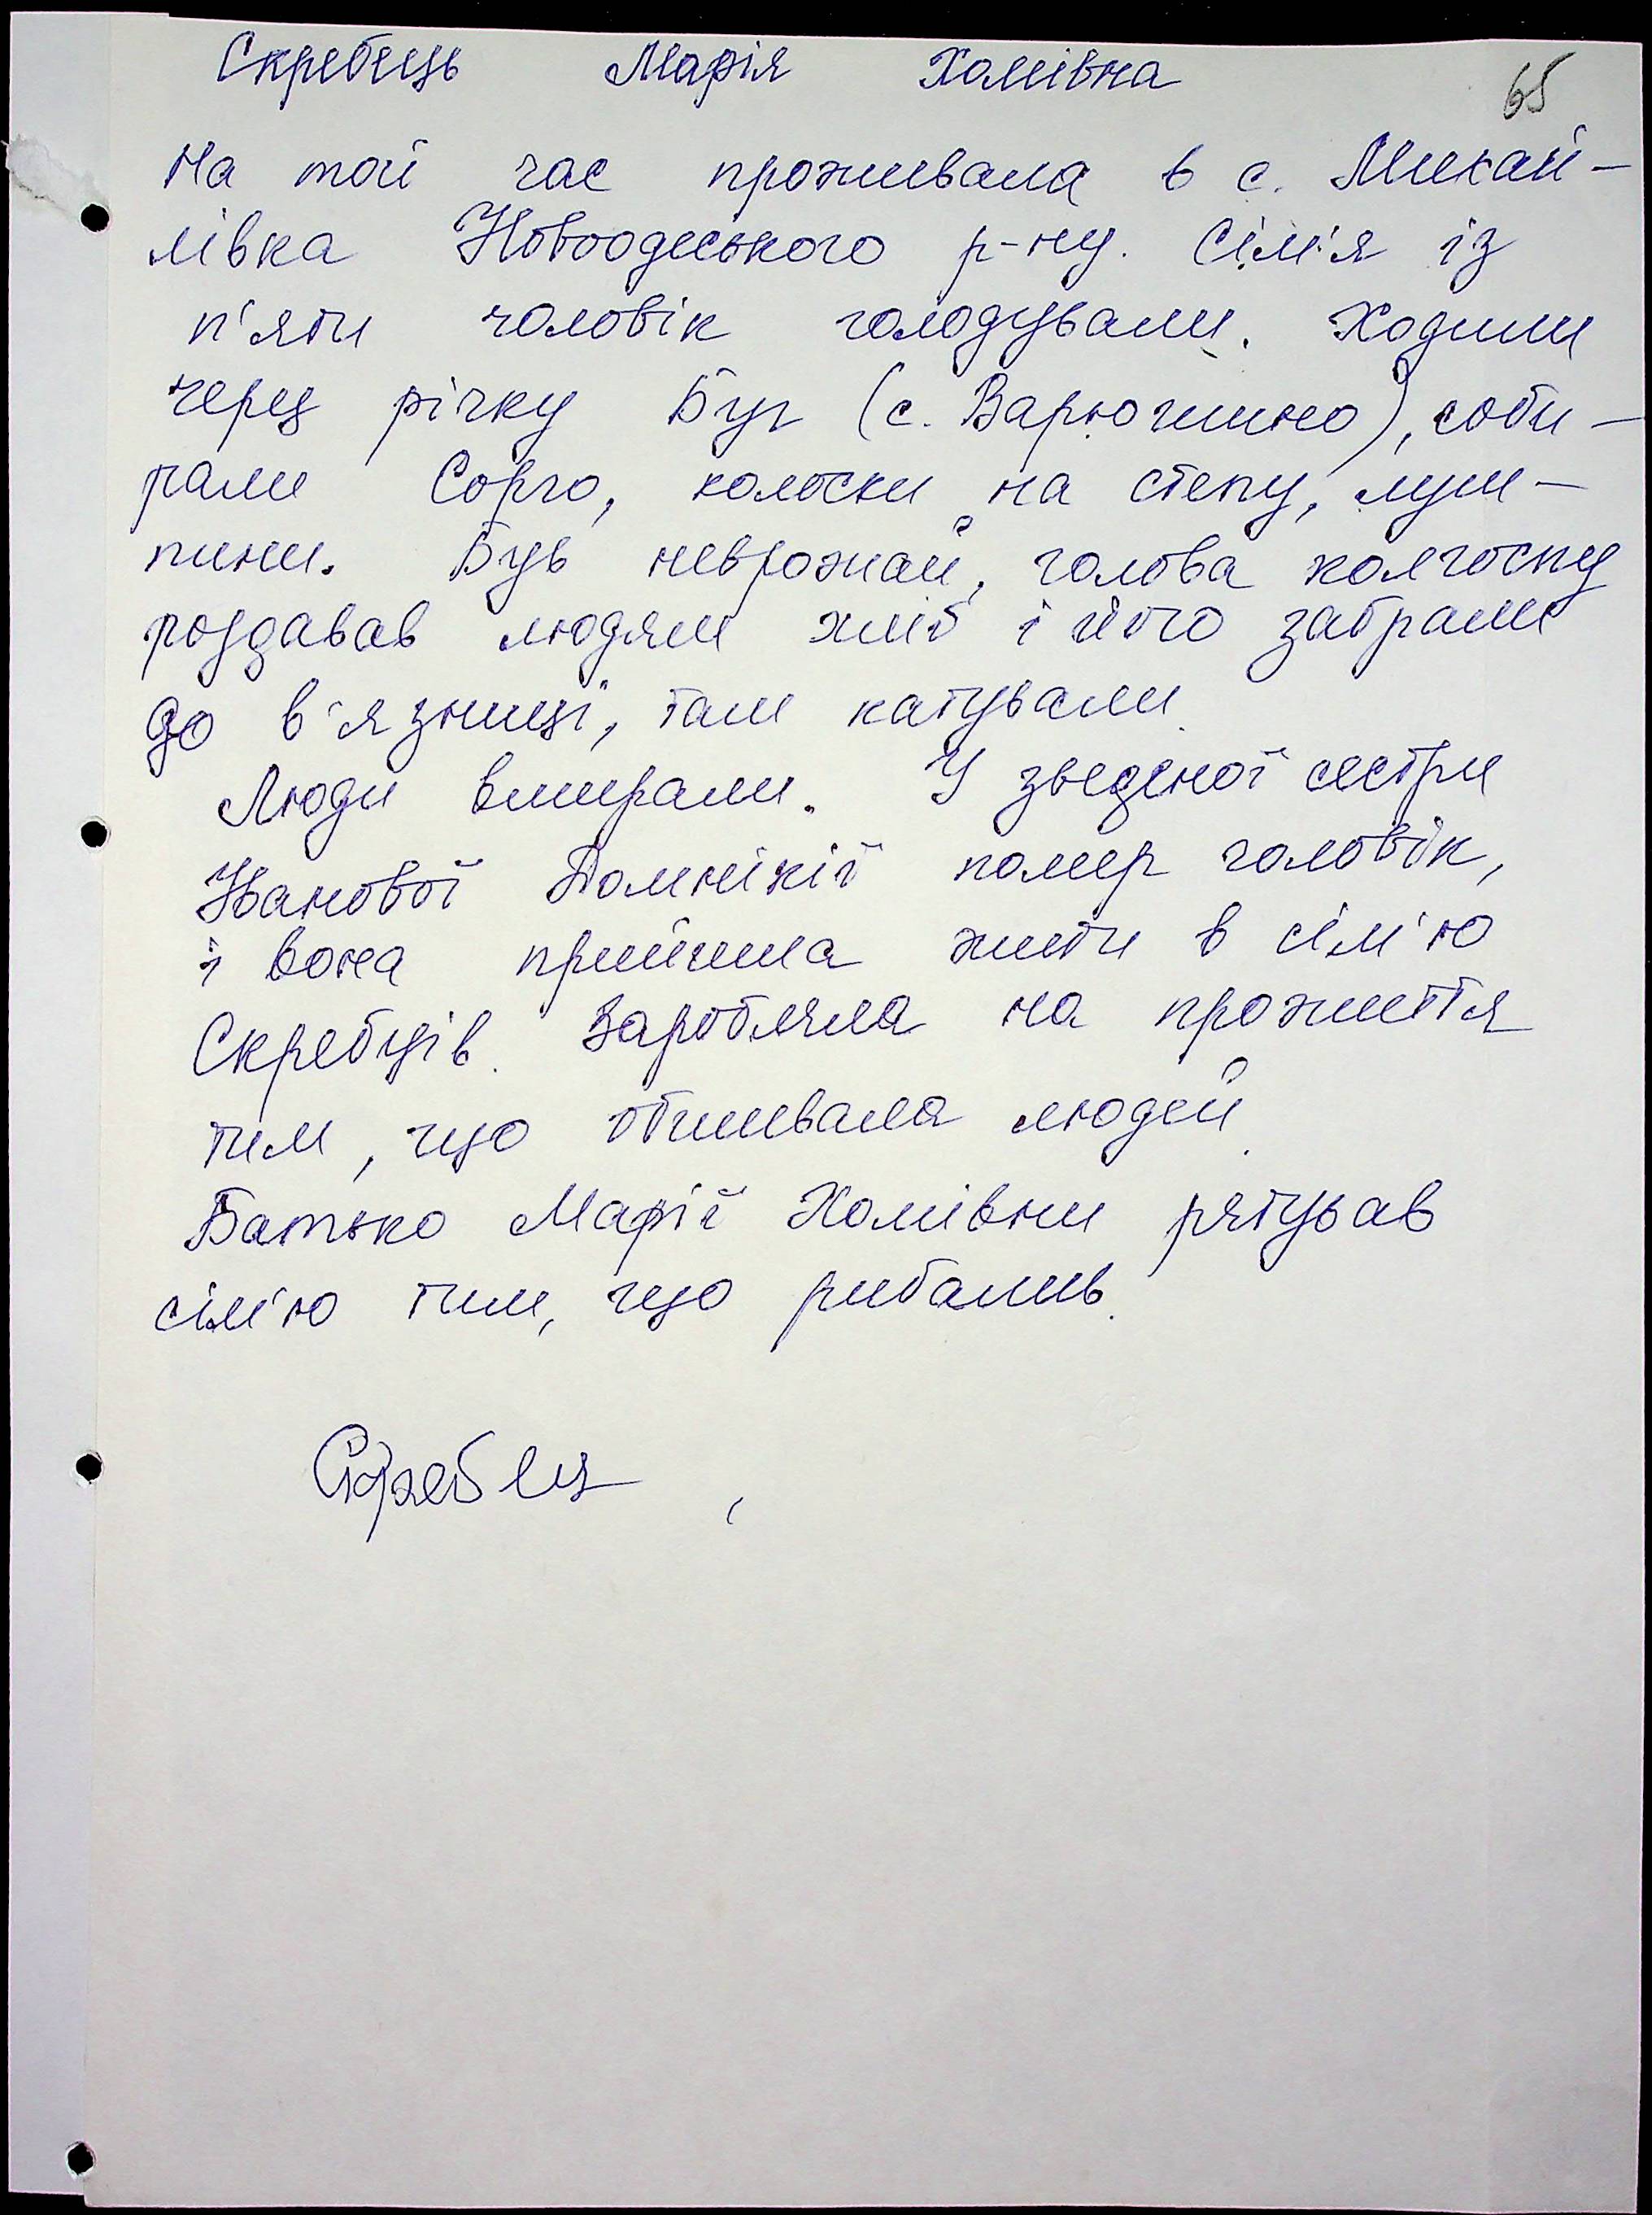 Скребець Марія Хомівна
65
На той час проживала в с. Михай-
лівка Новоодеського р-ну. Сім'я із
п'яти чоловік голодували. Ходили
через річку Буг (с. Варюшино), соби-
рали Сорго, колоски на степу, луш-
пини. Був неврожай, голова колгоспу
роздавав людям хліб і його забрали
до в'язниці, там катували.
Люди вмирали. У зведеної сестри
Іванової Домнікії помер чоловік,
і вона прийшла жити в сім'ю
Скребців. Заробляла на прожиття
тим, що обшивала людей.
Батько Марії Хомівни рятував
сім'ю тим, що рибалив.
Скребец